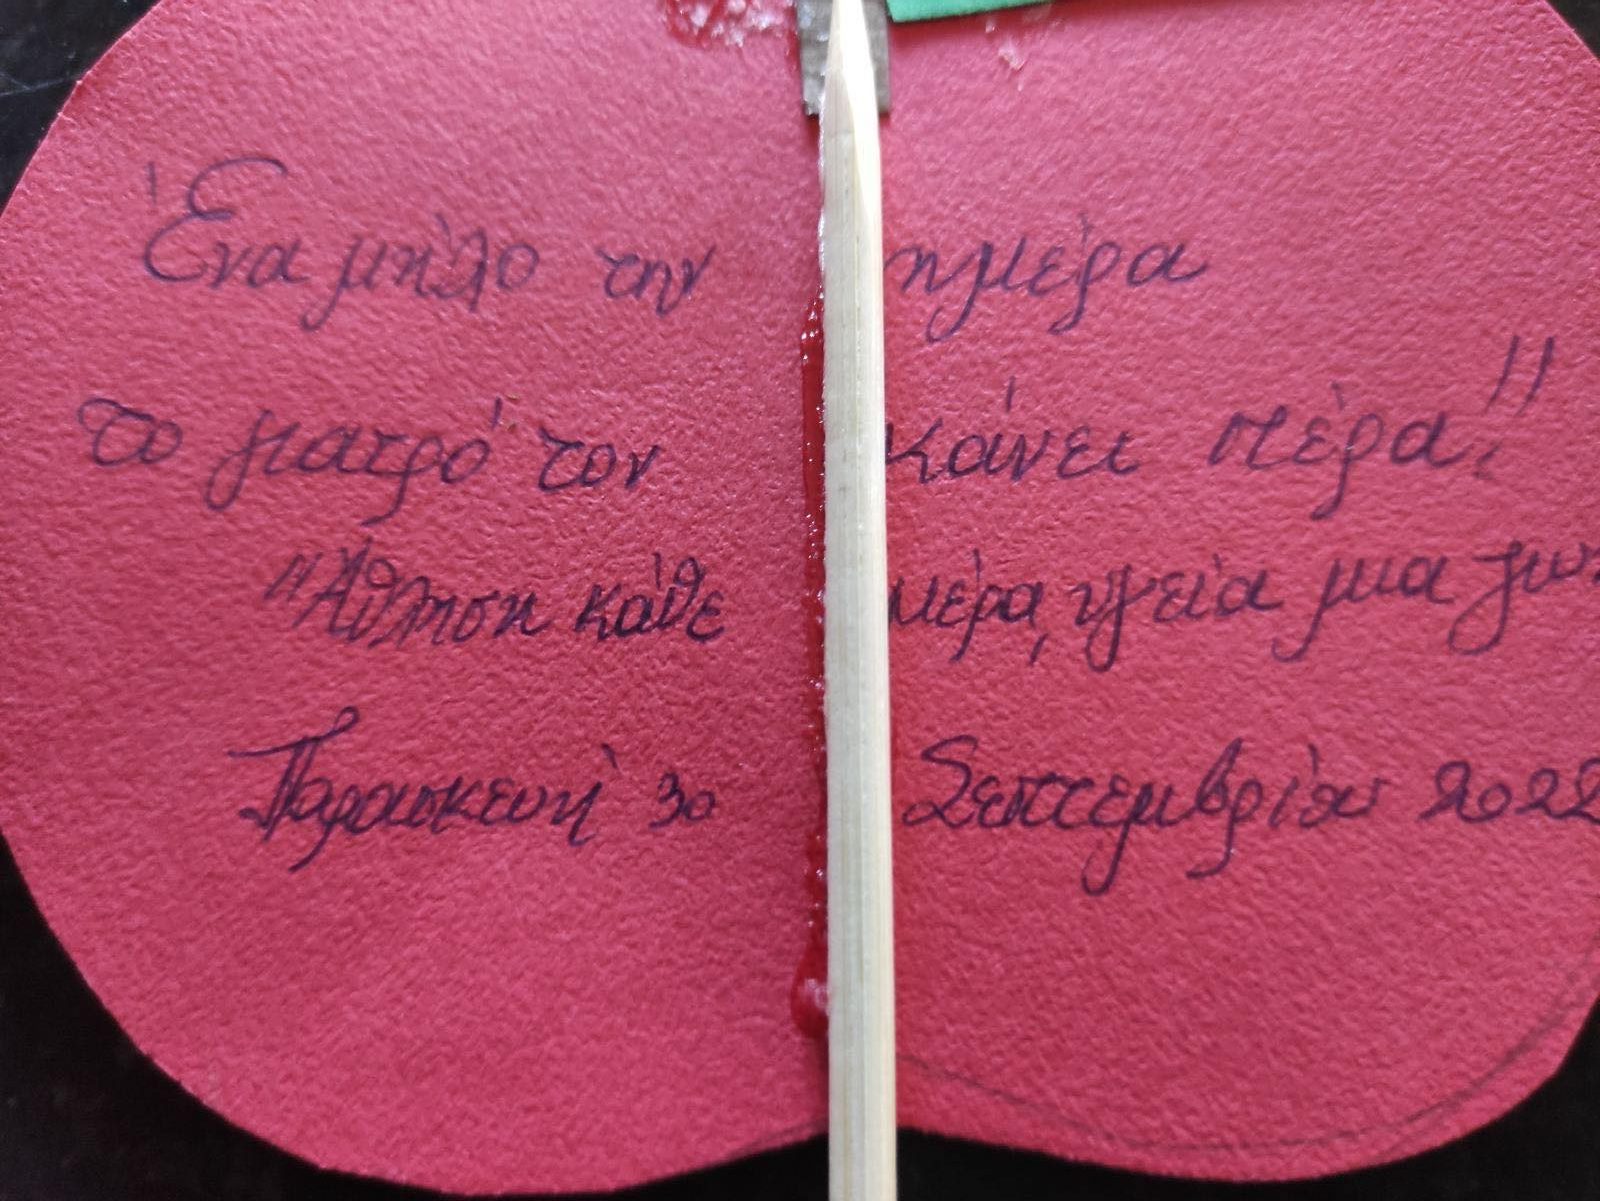 Ένα μήλο την ημέρα
το γιατρό τον κάνει πέρα!"
"Άθληση κάθε μέρα, υγεία μια
Παρασκευή 30 Σεπτεμβρίου 2022